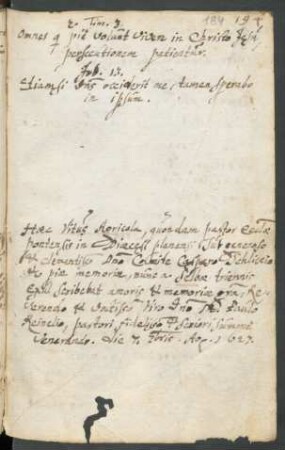 2. Tim. 3.
184 194
Omnes q pie volunt vivere in Christo Jesu
persecutionem patientur.
Job. 13.
Etiamsi Dns occiderit me, tamen sperabo
in ipsum.
Haec Vitus Agricola, quondam pastor
pontensis in Dioecesi planensi sub generoso
& Clementiss Dno Comite Casparo Schlickio
& piae memoriae, nunc a
Exul scribebat amoris & memoriae gra, Re-
verendo & Viro Dno Paulo
Reinelio, pastori & Seniori summe
Venerando. Die 7. 1627.